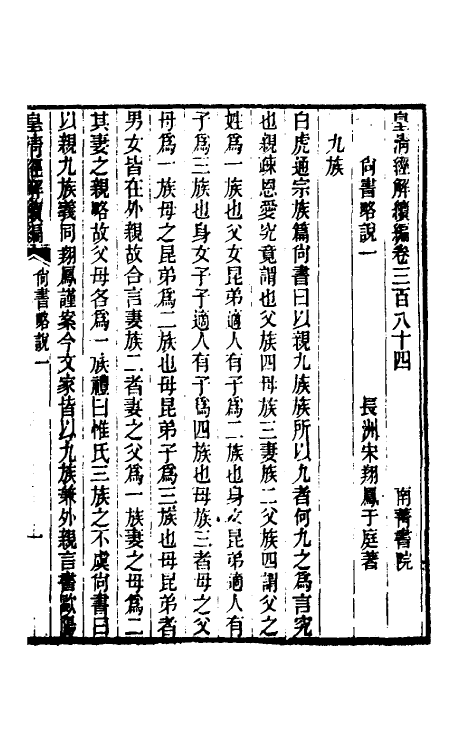 皇清經解續編卷三百八十四　南菁書院
尙書略說一　長洲宋翔鳳于庭著
九族
白虎通宗族篇尙書曰以親九族族所以九者何九之爲言究
也親疎恩愛究竟謂也父族四母族三妻族二父族四謂父之
姓爲一族也父女昆弟適人有子爲二族也身女昆弟適人有
子爲三族也身女子子適人有子爲四族也母族三者母之父
母爲一族母之昆弟爲二族也母昆弟子爲三族也母昆弟者
男女皆在外親故合言妻族二者妻之父爲一族妻之母爲二
其妻之親略故父母各爲一族禮曰惟氏三族之不虞尙書曰
以親九族義同翔鳳謹案今文家皆以九族兼外親言書歐陽
皇清經解續編　尙書略說一　一